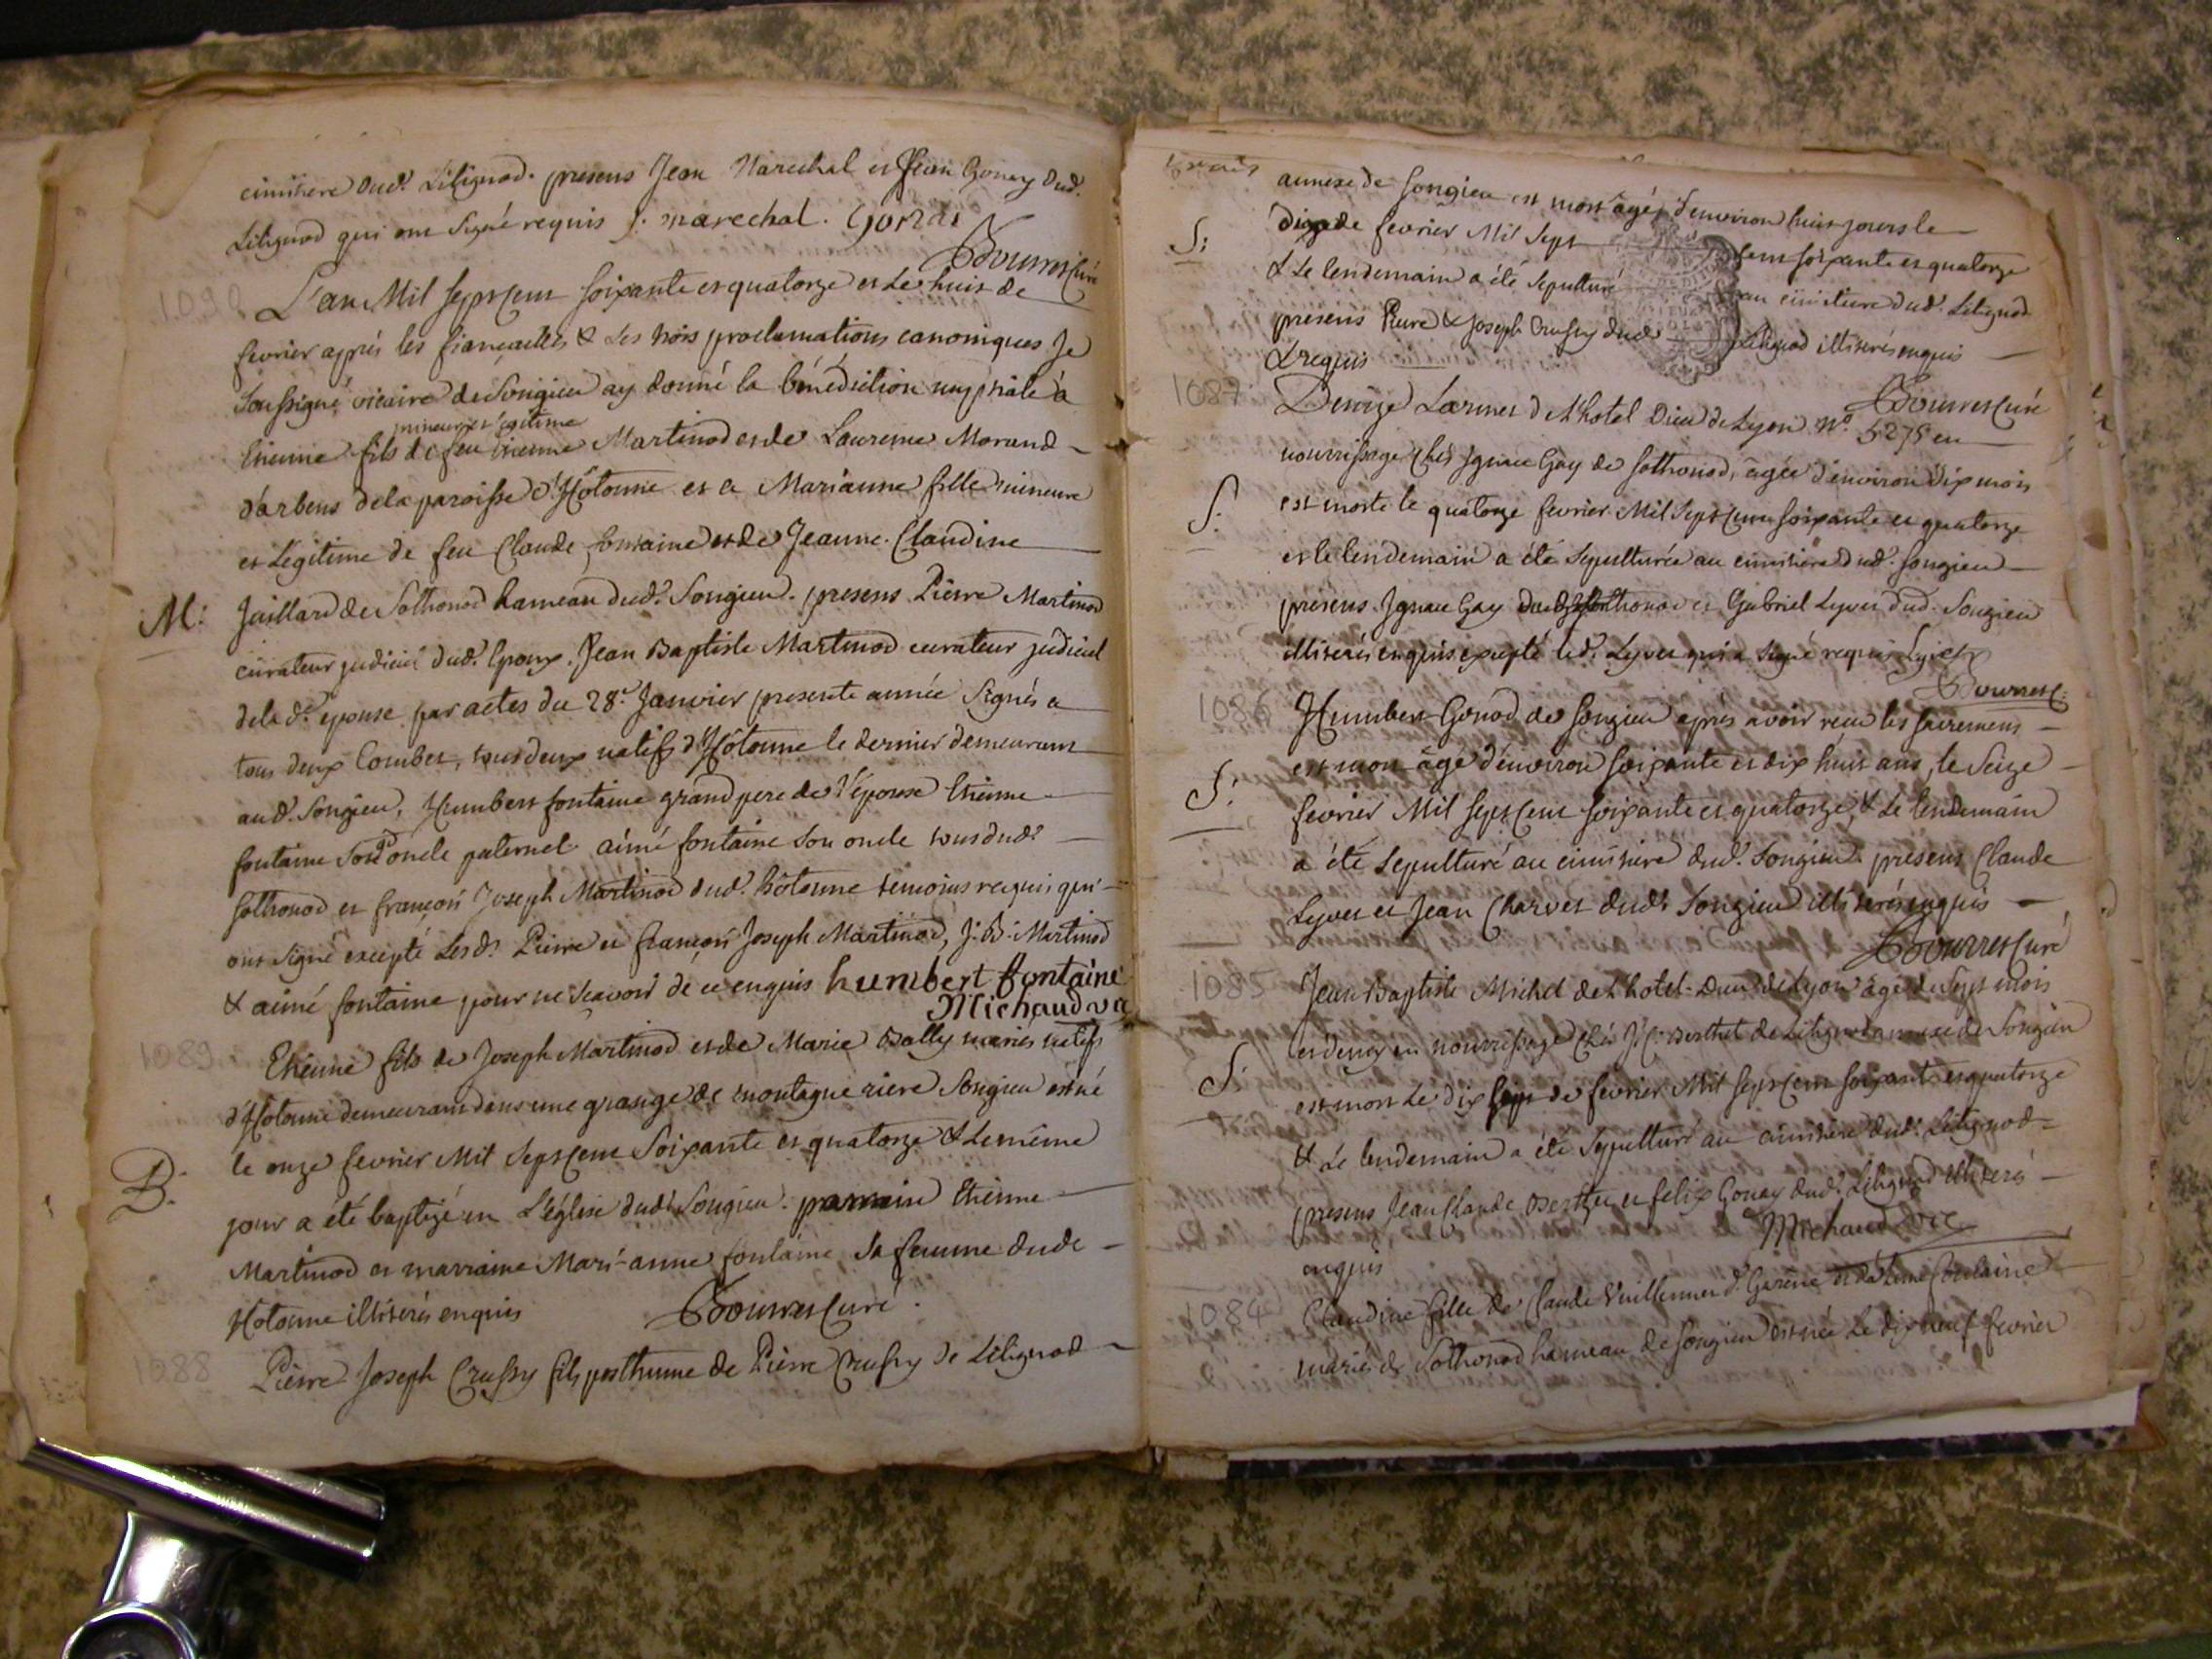 cimitiere dud. Litignod. presens Jean Marechal et Jean Gonay dud.
Litignod qui ont signé requis j. marechal. Gonai
Bourret Curé
1090
L'an Mil sept cent soixante et quatorze et le huit de
fevrier aprés les fiancailles & les trois proclamations canoniques Je
soussigné vicaire de Songieu ay donné la bénédiction nuptiale à
mineur et légitime
Etienne fils de feu Etienne Martinod et de Laurence Morand
d'arbens de la paroisse d'Hotonne et a Marianne fille mineure
et légitime de feu Claude fontaine et de Jeanne Claudine
M:
Juillard de Sothonod hameau dud. Songieu. presens Pierre Martinod
curateur judiciel dud. Epoux. Jean Baptiste Martinod curateur judiciel
de la de. epouse par actes du 28e. Janvier presente année Signés a
tous deux Combet, tous deux natifs d'Hotonne le dernier demeurant
aud. Songieu, Humbert fontaine grand pere de l'épouse Etienne
fontaine son gd oncle paternel aimé fontaine son oncle tous dudt
sothonod et françois Joseph Martinod dud. hotonne temoins requis qui
ont signé excepté lesds. Pierre et françois Joseph Martinod, J. B. Martinod
& aimé fontaine pour ne scavoir de ce enquis humbert fontaine
Michaud vic
1089
Etienne fils de Joseph Martinod et de Marie Bally mariés natifs
d'Hotonne demeurans dans une grange de montagne riere Songieu est né
le onze fevrier Mil Sept cent Soixante et quatorze & le même
B.
jour a été baptizé en L'église dudt Songieu. parrain Etienne
Martinod et marraine Mari-anne fontaine sa femme dude
Hotonne illiterés enquis Bourret Curé.
1088
Pierre Joseph Crussy fils posthume de Pierre Crussy de Litignod
annexe de Songieu est mort agé d'environ huit jours le
S:
dix de fevrier Mil Sept cent soixante et quatorze
& le lendemain a été sepulturé au cimitiere dud. Litignod
presens Pierre & Joseph Crussy dude Litignod illiterés enquis
& requis
Bourret Curé
1087
Denize Larmet de l'hotel Dieu de Lyon No. 5275 en
nourrissage chés Ignace Gay de sothonod, agée d'environ dix mois
S.
est morte le quatorze fevrier Mil Sept Cent soixante et quatorze
et le lendemain a été sepulturée au cimitiere dud. songieu
presens Ignace Gay dud. sothonod et Gabriel Lyvet dud. Songieu
illiterés enquis excepté led. Lyvet qui a signé requis Lyvet
Bourret C.
1086
Humbert Gonod de songieu aprés avoir recu les sacremens
est mort âgé d'environ soixante et dix huit ans, le Seize
S:
fevrier Mil Sept Cent soixante et quatorze, & le lendemain
a été sepulturé au cimitiere dud. Songieu. présens Claude
Lyvet et Jean Charvet dudt Songieu illiterés enquis
Bourret Curé
1085
Jean Baptiste Michel de l'hotel-Dieu de Lyon agé de Sept mois
et demy en nourrissage chés J. C. Berthet de Litignod annexe de Songieu
S.
est mort le dix sept de fevrier Mil Sept Cent soixante et quatorze
& le lendemain a été sepulturé au cimitiere dud. Litignod
presens Jean Claude Berthet et felix Gonay dud. Litignod illiterés
Michaud vic
enquis
1084
Claudine fille de Claude Vuillermet d. Garine et d'aimée fontaine
mariés de Sothonod hameau de songieu est née le dix neuf fevrier